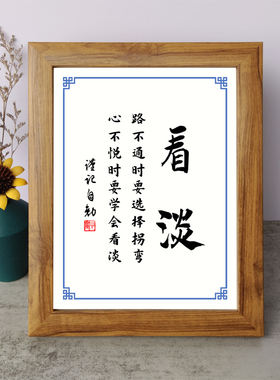 看淡
路不通时要选择拐弯
心不悦时要学会看淡
谨记自勉